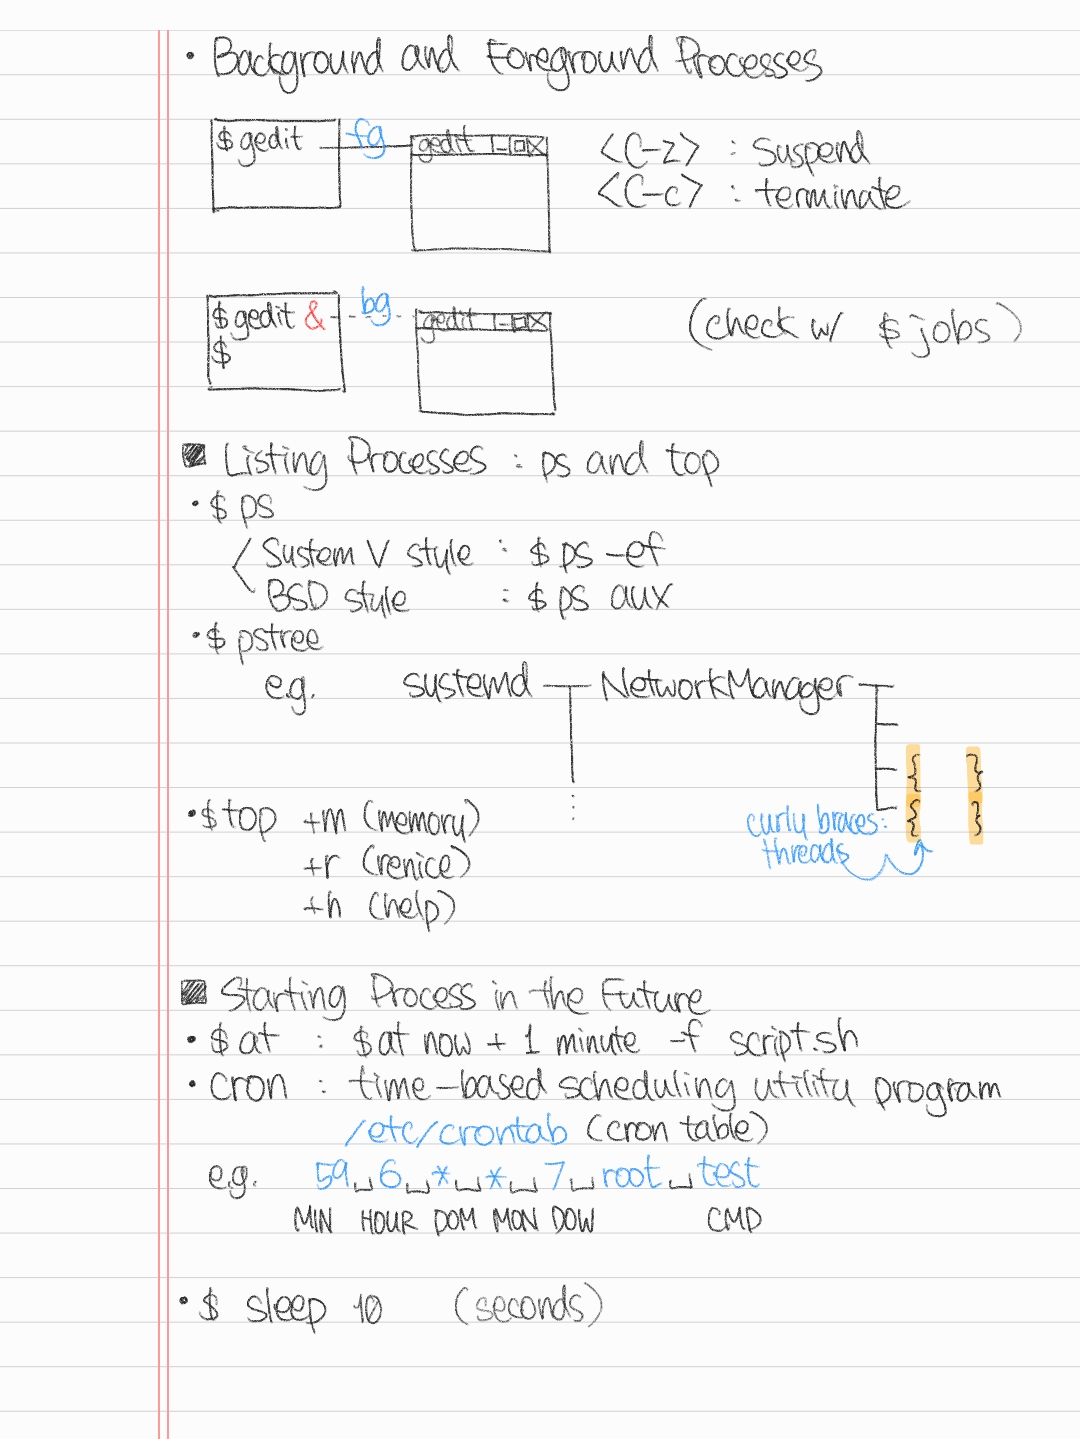 • Background and Foreground Processes
$ gedit fg gedit <C-z> : suspend
<C-c> : terminate
$ gedit & bg gedit (check w/ $ jobs)
$
Listing Processes : ps and top
• $ ps
System V style : $ ps -ef
BSD style : $ ps aux
• $ pstree
e.g. systemd NetworkManager
{ }
{ }
curly braces:
threads
• $ top +m (memory)
+r (renice)
+h (help)
Starting Process in the Future
• $ at : $ at now + 1 minute -f script.sh
• cron : time-based scheduling utility program
/etc/crontab (cron table)
e.g. 59␣6␣*␣*␣7␣root␣test
MIN HOUR DOM MON DOW CMD
• $ sleep 10 (seconds)